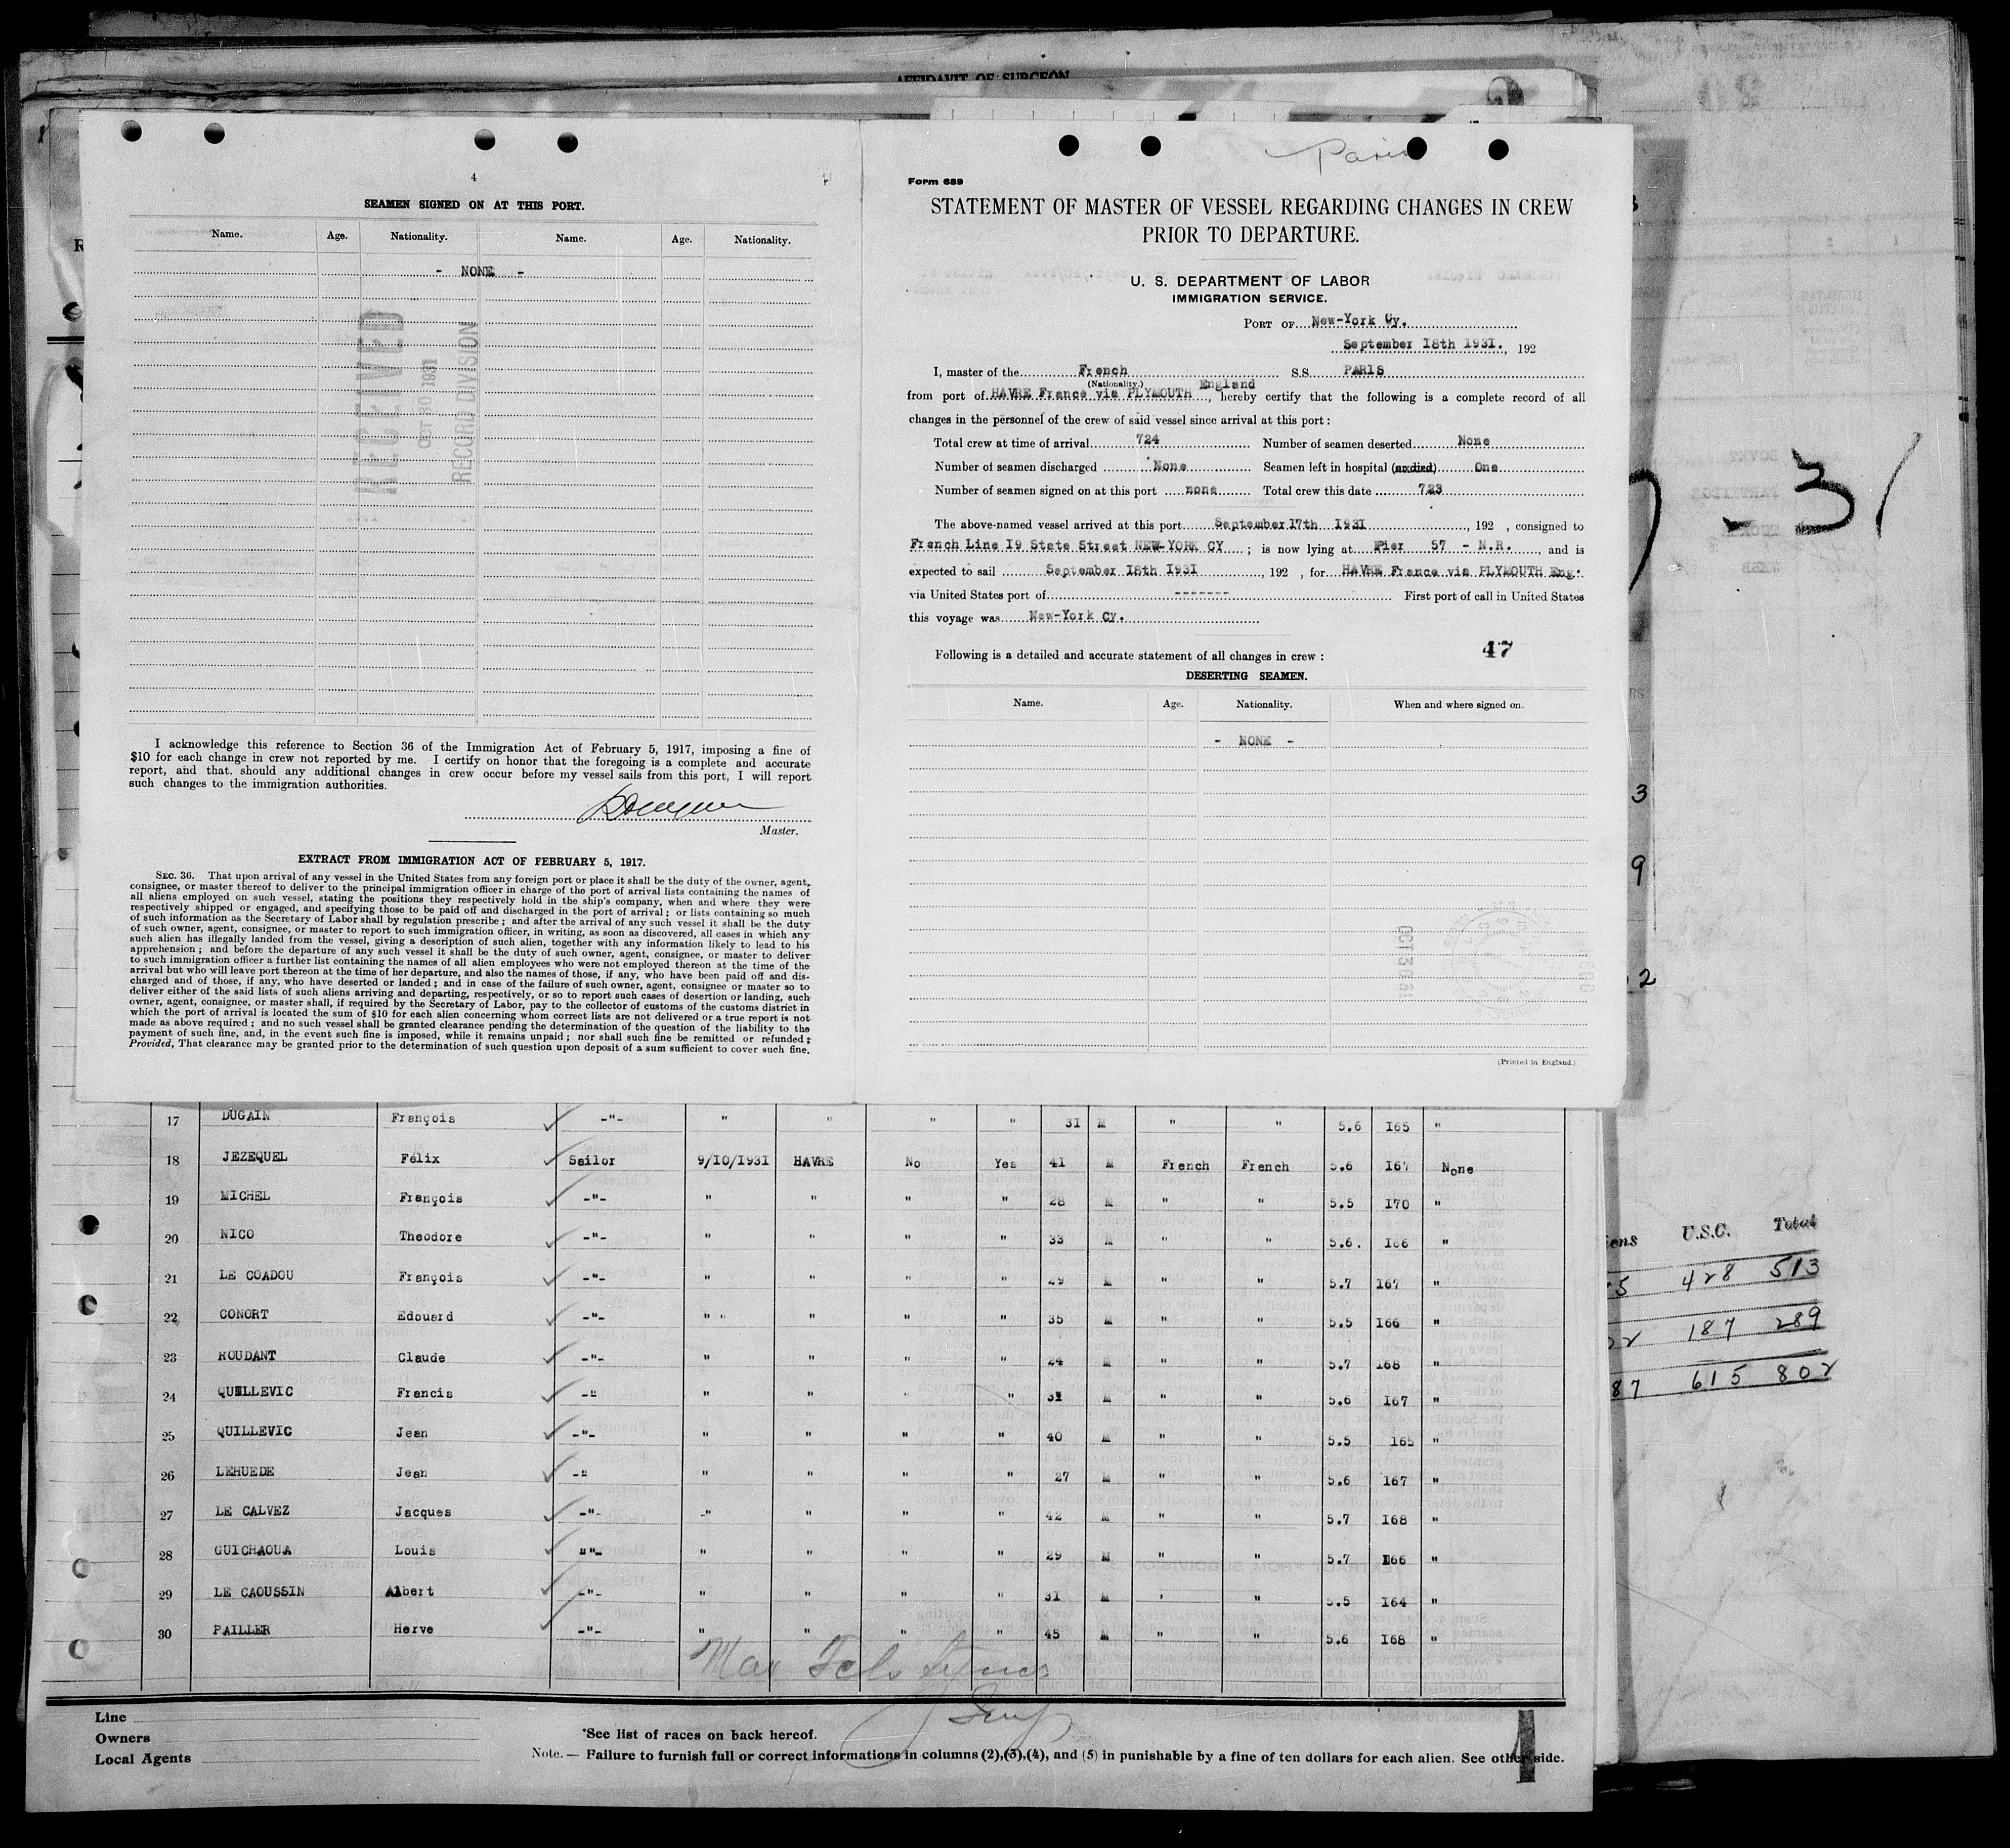 AFFIDAVIT OF SURGEON
4
SEAMEN SIGNED ON AT THIS PORT.
Name. Age. Nationality. Name. Age. Nationality.
- NONE -
RECEIVED
OCT 30 1931
RECORD DIVISION
I acknowledge this reference to Section 36 of the Immigration Act of February 5, 1917, imposing a fine of
$10 for each change in crew not reported by me. I certify on honor that the foregoing is a complete and accurate
report, and that. should any additional changes in crew occur before my vessel sails from this port, I will report
such changes to the immigration authorities.
Master.
EXTRACT FROM IMMIGRATION ACT OF FEBRUARY 5, 1917.
SEC. 36. That upon arrival of any vessel in the United States from any foreign port or place it shall be the duty of the owner, agent,
consignee, or master thereof to deliver to the principal immigration officer in charge of the port of arrival lists containing the names of
all aliens employed on such vessel, stating the positions they respectively hold in the ship's company, when and where they were
respectively shipped or engaged, and specifying those to be paid off and discharged in the port of arrival; or lists containing so much
of such information as the Secretary of Labor shall by regulation prescribe; and after the arrival of any such vessel it shall be the duty
of such owner, agent, consignee, or master to report to such immigration officer, in writing, as soon as discovered, all cases in which any
such alien has illegally landed from the vessel, giving a description of such alien, together with any information likely to lead to his
apprehension; and before the departure of any such vessel it shall be the duty of such owner, agent, consignee, or master to deliver
to such immigration officer a further list containing the names of all alien employees who were not employed thereon at the time of the
arrival but who will leave port thereon at the time of her departure, and also the names of those, if any, who have been paid off and dis-
charged and of those, if any, who have deserted or landed; and in case of the failure of such owner, agent, consignee or master so to
deliver either of the said lists of such aliens arriving and departing, respectively, or so to report such cases of desertion or landing, such
owner, agent, consignee, or master shall, if required by the Secretary of Labor, pay to the collector of customs of the customs district in
which the port of arrival is located the sum of $10 for each alien concerning whom correct lists are not delivered or a true report is not
made as above required; and no such vessel shall be granted clearance pending the determination of the question of the liability to the
payment of such fine, and, in the event such fine is imposed, while it remains unpaid; nor shall such fine be remitted or refunded:
Provided, That clearance may be granted prior to the determination of such question upon deposit of a sum sufficient to cover such fine.
Paris
Form 689
STATEMENT OF MASTER OF VESSEL REGARDING CHANGES IN CREW
PRIOR TO DEPARTURE.
U. S. DEPARTMENT OF LABOR
IMMIGRATION SERVICE.
PORT OF New-York Cy.
September 18th 1931. , 192
I, master of the French S.S. PARIS
(Nationality.) England
from port of HAVRE France via PLYMOUTH , hereby certify that the following is a complete record of all
changes in the personnel of the crew of said vessel since arrival at this port:
Total crew at time of arrival 724 Number of seamen deserted None
Number of seamen discharged None Seamen left in hospital (or died) One
Number of seamen signed on at this port none Total crew this date 723
The above-named vessel arrived at this port September 17th 1931 , 192 , consigned to
French Line 19 State Street NEW-YORK CY ; is now lying at Pier 57 - N.R. , and is
expected to sail September 18th 1931 , 192 , for HAVRE France via PLYMOUTH Eng.
via United States port of ------- First port of call in United States
this voyage was New-York Cy.
47
Following is a detailed and accurate statement of all changes in crew:
DESERTING SEAMEN.
Name. Age. Nationality. When and where signed on.
- NONE -
OCT 30 31
(Printed in England.)
17 DUGAIN François -"- " " " " 31 M " " 5.6 165 "
18 JEZEQUEL Félix Sailor 9/10/1931 HAVRE No Yes 41 M French French 5.6 167 None
19 MICHEL François -"- " " " " 28 M " " 5.5 170 "
20 NICO Theodore -"- " " " " 33 M " " 5.6. 166 "
21 LE COADOU François -"- " " " " 29 M " " 5.7 167 "
22 CONORT Edouard -"- " " " " 35 M " " 5.5 166 "
23 ROUDANT Claude -"- " " " " 24 M " " 5.7 168 "
24 QUILLEVIC Francis -" " " " " 31 M " " 5.6 167 "
25 QUILLEVIC Jean -"- " " " " 40 M " " 5.5 165 "
26 LEHUEDE Jean -" " " " " 27 M " " 5.6 167 "
27 LE CALVEZ Jacques -"- -" " " " 42 M " " 5.7 168 "
28 GUICHAOUA Louis ""- " " " " 29 M " " 5.7 166 "
29 LE CAOUSSIN Albert -"- " " " " 31 M ' " 5.5 164 "
30 PAILLER Herve -"- " " " " 45 M " " 5.6 168 "
Line
Owners
Local Agents
*See list of races on back hereof.
Note. — Failure to furnish full or correct informations in columns (2),(3),(4), and (5) in punishable by a fine of ten dollars for each alien. See other side.
- 31
3
9
2
ens U.S.C. Total
5 428 513
22 187 289
87 615 802